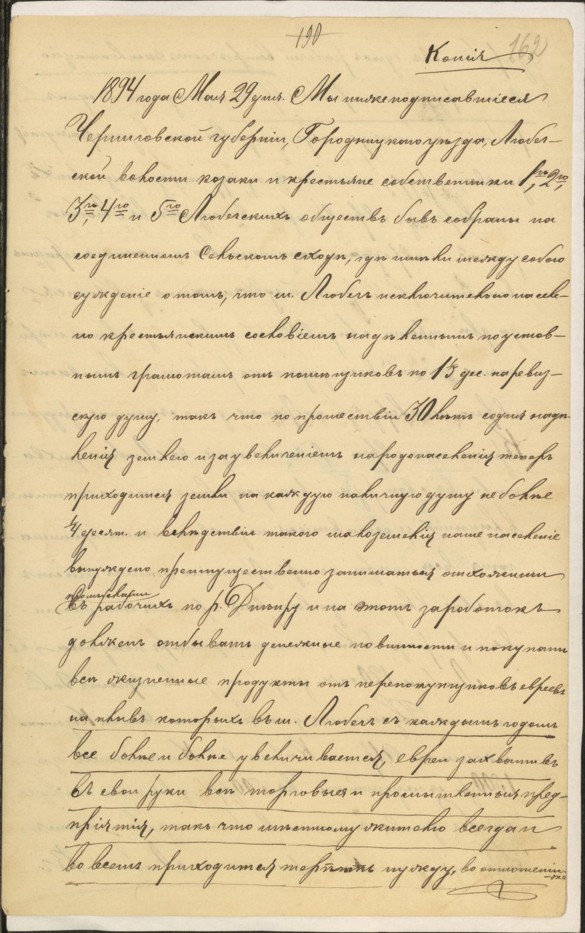 190
162
Копія
1894 года Мая 29 дня. Мы нижеподписавшіеся
Черниговской губерніи, Городницкаго уѣзда, Любеч-
ской волости козаки и крестьяне собственники 1го, 2го,
3го, 4го и 5го Любечскихъ обществъ бывъ собраны на
соединенномъ Сельскомъ сходѣ, гдѣ имѣли между собою
сужденіе о томъ, что м. Любечъ исключительно населе-
но крестьянскимъ сословіемъ надѣленнымъ по устав-
нымъ грамотамъ отъ помѣщиковъ по 1⅓ дес. на ревиз-
скую душу, такъ что по прошествіи 30 лѣтъ со дня надѣ-
ленія землею и за увеличеніемъ народонаселенія теперь
приходится земли на каждую наличную душу не болѣе
¼ десят. и вслѣдствіи такого малоземелія наше населеніе
вынуждено преимущественно заниматься отхожими
промыслами
въ рабочихъ по р. Днѣпру и на этотъ заработокъ
долженъ отбывать денежные повинности и покупать
всѣ жизненные продукты отъ перекупщиковъ евреевъ
наплывъ которыхъ въ м. Любечъ съ каждымъ годомъ
все болѣе и болѣе увеличивается, евреи захвативъ
въ свои руки всѣ торговыя и промышленныя пред-
пріятія, такъ что мѣстному жителю всегда и
во всемъ приходится терпѣть нужду, во отношеніи